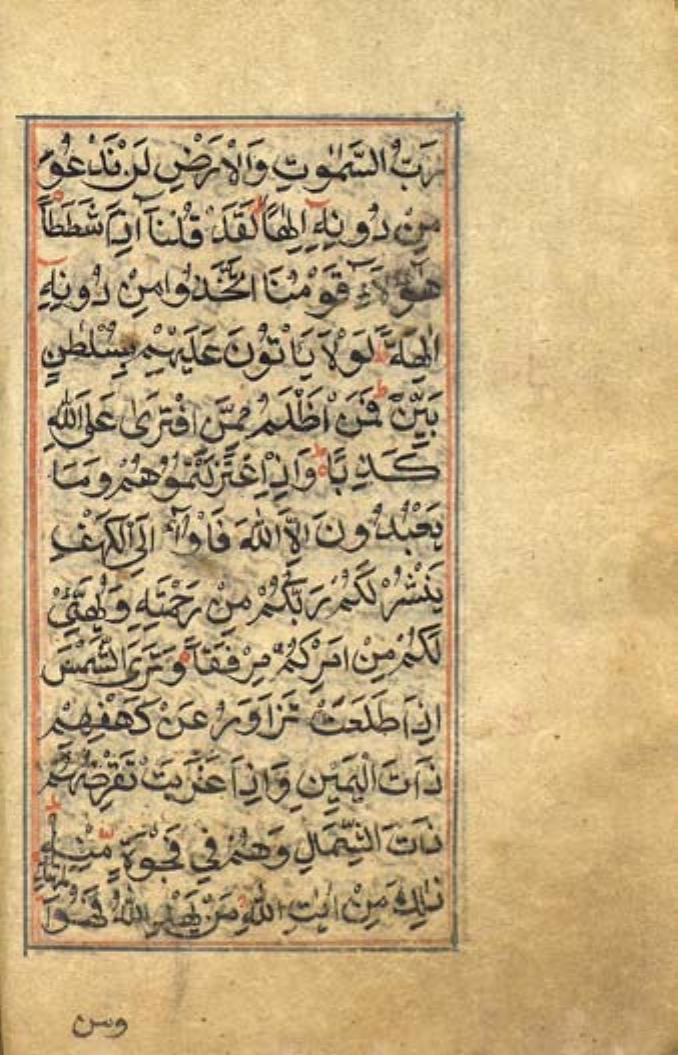 رَبُّ السَّمٰوٰتِ وَالْاَرْضِ لَنْ نَدْعُوَا
مِنْ دُونِهٖٓ اِلٰهًا لَقَدْ قُلْنَآ اِذًا شَطَطًا
هٰٓؤُلَآءِ قَوْمُنَا اتَّخَذُوا مِنْ دُونِهٖٓ
اٰلِهَةً لَوْلَا يَاْتُونَ عَلَيْهِمْ بِسُلْطٰنٍ
بَيِّنٍ فَمَنْ اَظْلَمُ مِمَّنِ افْتَرٰى عَلَى اللّٰهِ
كَذِبًا وَاِذِ اعْتَزَلْتُمُوهُمْ وَمَا
يَعْبُدُونَ اِلَّا اللّٰهَ فَاْوٗآ اِلَى الْكَهْفِ
يَنْشُرْ لَكُمْ رَبُّكُمْ مِنْ رَحْمَتِهٖ وَيُهَيِّئْ
لَكُمْ مِنْ اَمْرِكُمْ مِرْفَقًا وَتَرَى الشَّمْسَ
اِذَا طَلَعَتْ تَزَاوَرُ عَنْ كَهْفِهِمْ
ذَاتَ الْيَمِينِ وَاِذَا غَرَبَتْ تَقْرِضُهُمْ
ذَاتَ الشِّمَالِ وَهُمْ فِي فَجْوَةٍ مِّنْهُ
ذٰلِكَ مِنْ اٰيٰتِ اللّٰهِ مَنْ يَهْدِ اللّٰهُ فَهُوَا
ومن